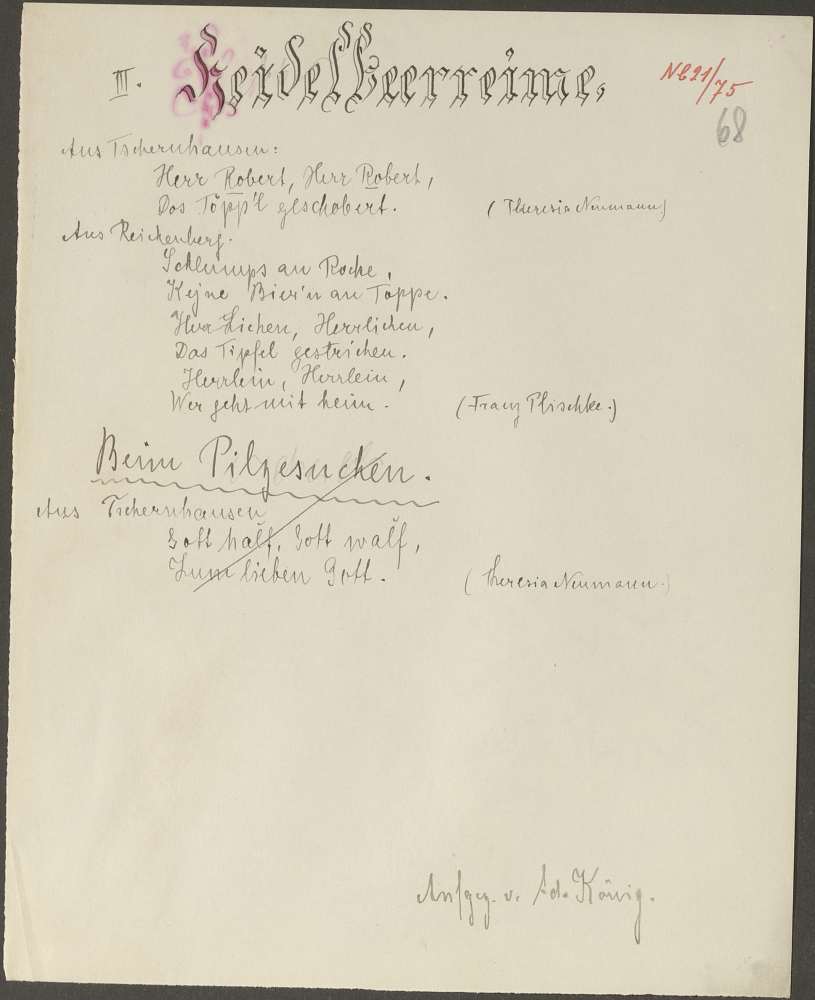 III. Heidelbeerreime,
NB21/75
68
Aus Tschernhausen:
Herr Robert, Herr Robert,
Dos Töpp'l geschobert. (Theresia Neumann)
Aus Reichenberg.
Schlumps an Roche,
Kejne Bier'n an Toppe.
Herrlichen, Herrlichen,
Das Tipfel gestrichen.
Herrlein, Herrlein,
Wer geht mit heim. (Franz Plischke.)
Beim Pilzesuchen.
Aus Tschernhausen
Gott half, Gott walf,
Zum lieben Gott. (Theresia Neumann.)
Aufgez. v. Ad. König.